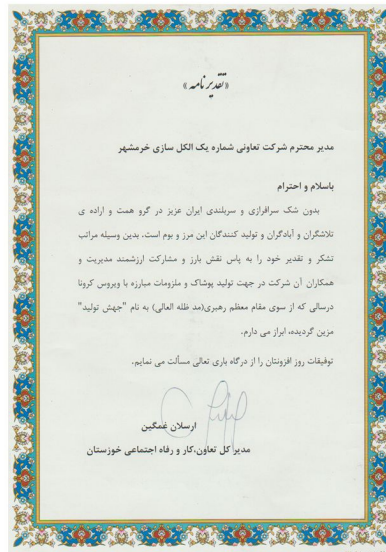 « تقدیر نامه »
مدیر محترم شرکت تعاونی شماره یک الکل سازی خرمشهر
باسلام و احترام
بدون شک سرافرازی و سربلندی ایران عزیز در گرو همت و اراده ی
تلاشگران و آبادگران و تولید کنندگان این مرز و بوم است. بدین وسیله مراتب
تشکر و تقدیر خود را به پاس نقش بارز و مشارکت ارزشمند مدیریت و
همکاران آن شرکت در جهت تولید پوشاک و ملزومات مبارزه با ویروس کرونا
درسالی که از سوی مقام معظم رهبری(مد ظله العالی) به نام "جهش تولید"
مزین گردیده، ابراز می دارم.
توفیقات روز افزونتان را از درگاه باری تعالی مسألت می نمایم.
ارسلان غمگین
مدیر کل تعاون،کار و رفاه اجتماعی خوزستان